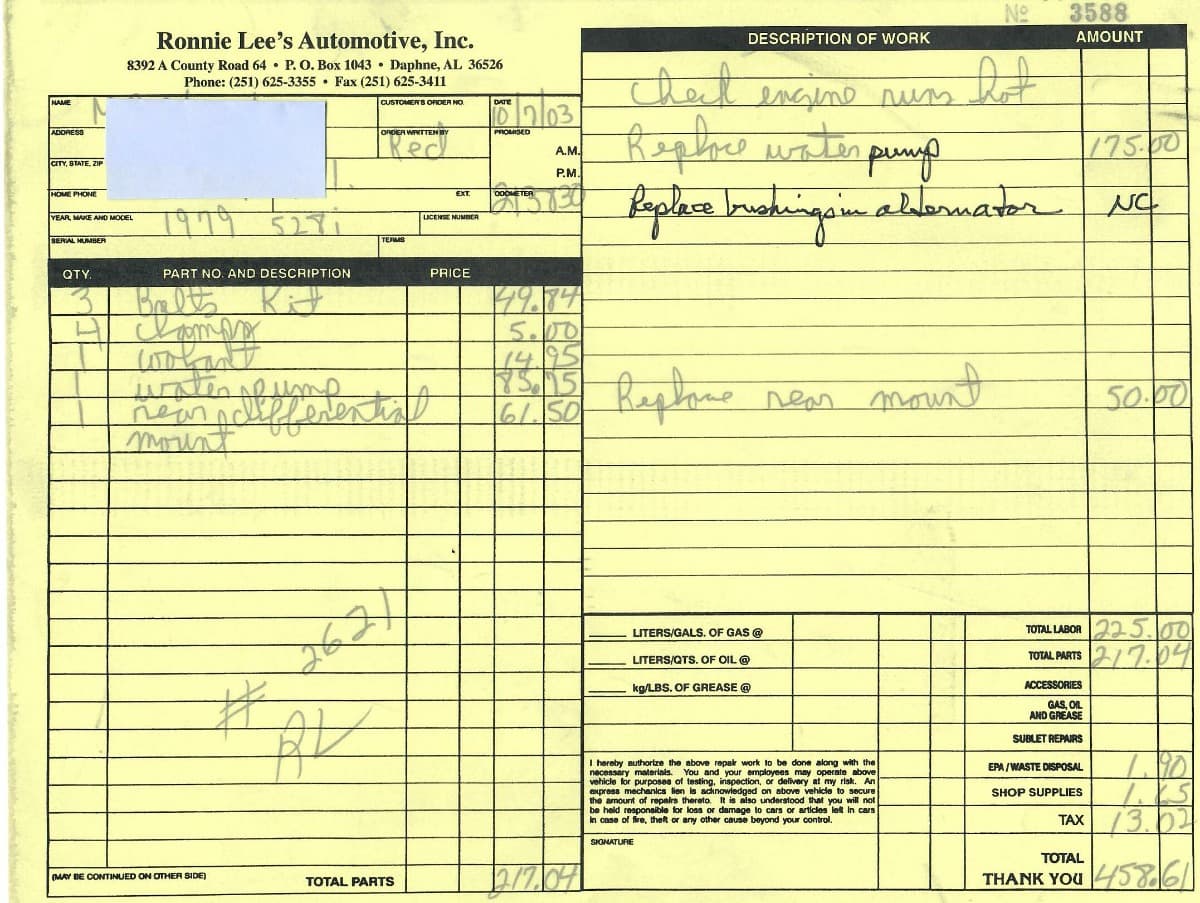 Nº 3588
Ronnie Lee's Automotive, Inc.
8392 A County Road 64 • P. O. Box 1043 • Daphne, AL 36526
Phone: (251) 625-3355 • Fax (251) 625-3411
NAME
CUSTOMER'S ORDER NO.
DATE 10/7/03
ADDRESS
ORDER WRITTEN BY Red
PROMISED
A.M.
P.M.
CITY, STATE, ZIP
HOME PHONE
EXT.
ODOMETER 213830
YEAR, MAKE AND MODEL 1979 528i
LICENSE NUMBER
SERIAL NUMBER
TERMS
QTY. PART NO. AND DESCRIPTION PRICE
3 Belts Kit 49.84
4 clamps 5.00
1 coolant 14.95
1 water pump 85.75
1 rear differential 61.50
mount
# 2621
RL
(MAY BE CONTINUED ON OTHER SIDE) TOTAL PARTS 217.04
DESCRIPTION OF WORK AMOUNT
Check engine runs hot
Replace water pump 175.00
Replace bushings in alternator NC
Replace rear mount 50.00
LITERS/GALS. OF GAS @
LITERS/QTS. OF OIL @
kg/LBS. OF GREASE @
TOTAL LABOR 225.00
TOTAL PARTS 217.04
ACCESSORIES
GAS, OIL
AND GREASE
SUBLET REPAIRS
EPA / WASTE DISPOSAL 1.90
SHOP SUPPLIES 1.65
TAX 13.02
TOTAL
THANK YOU 458.61
I hereby authorize the above repair work to be done along with the
necessary materials. You and your employees may operate above
vehicle for purposes of testing, inspection, or delivery at my risk. An
express mechanics lien is acknowledged on above vehicle to secure
the amount of repairs thereto. It is also understood that you will not
be held responsible for loss or damage to cars or articles left in cars
in case of fire, theft or any other cause beyond your control.
SIGNATURE